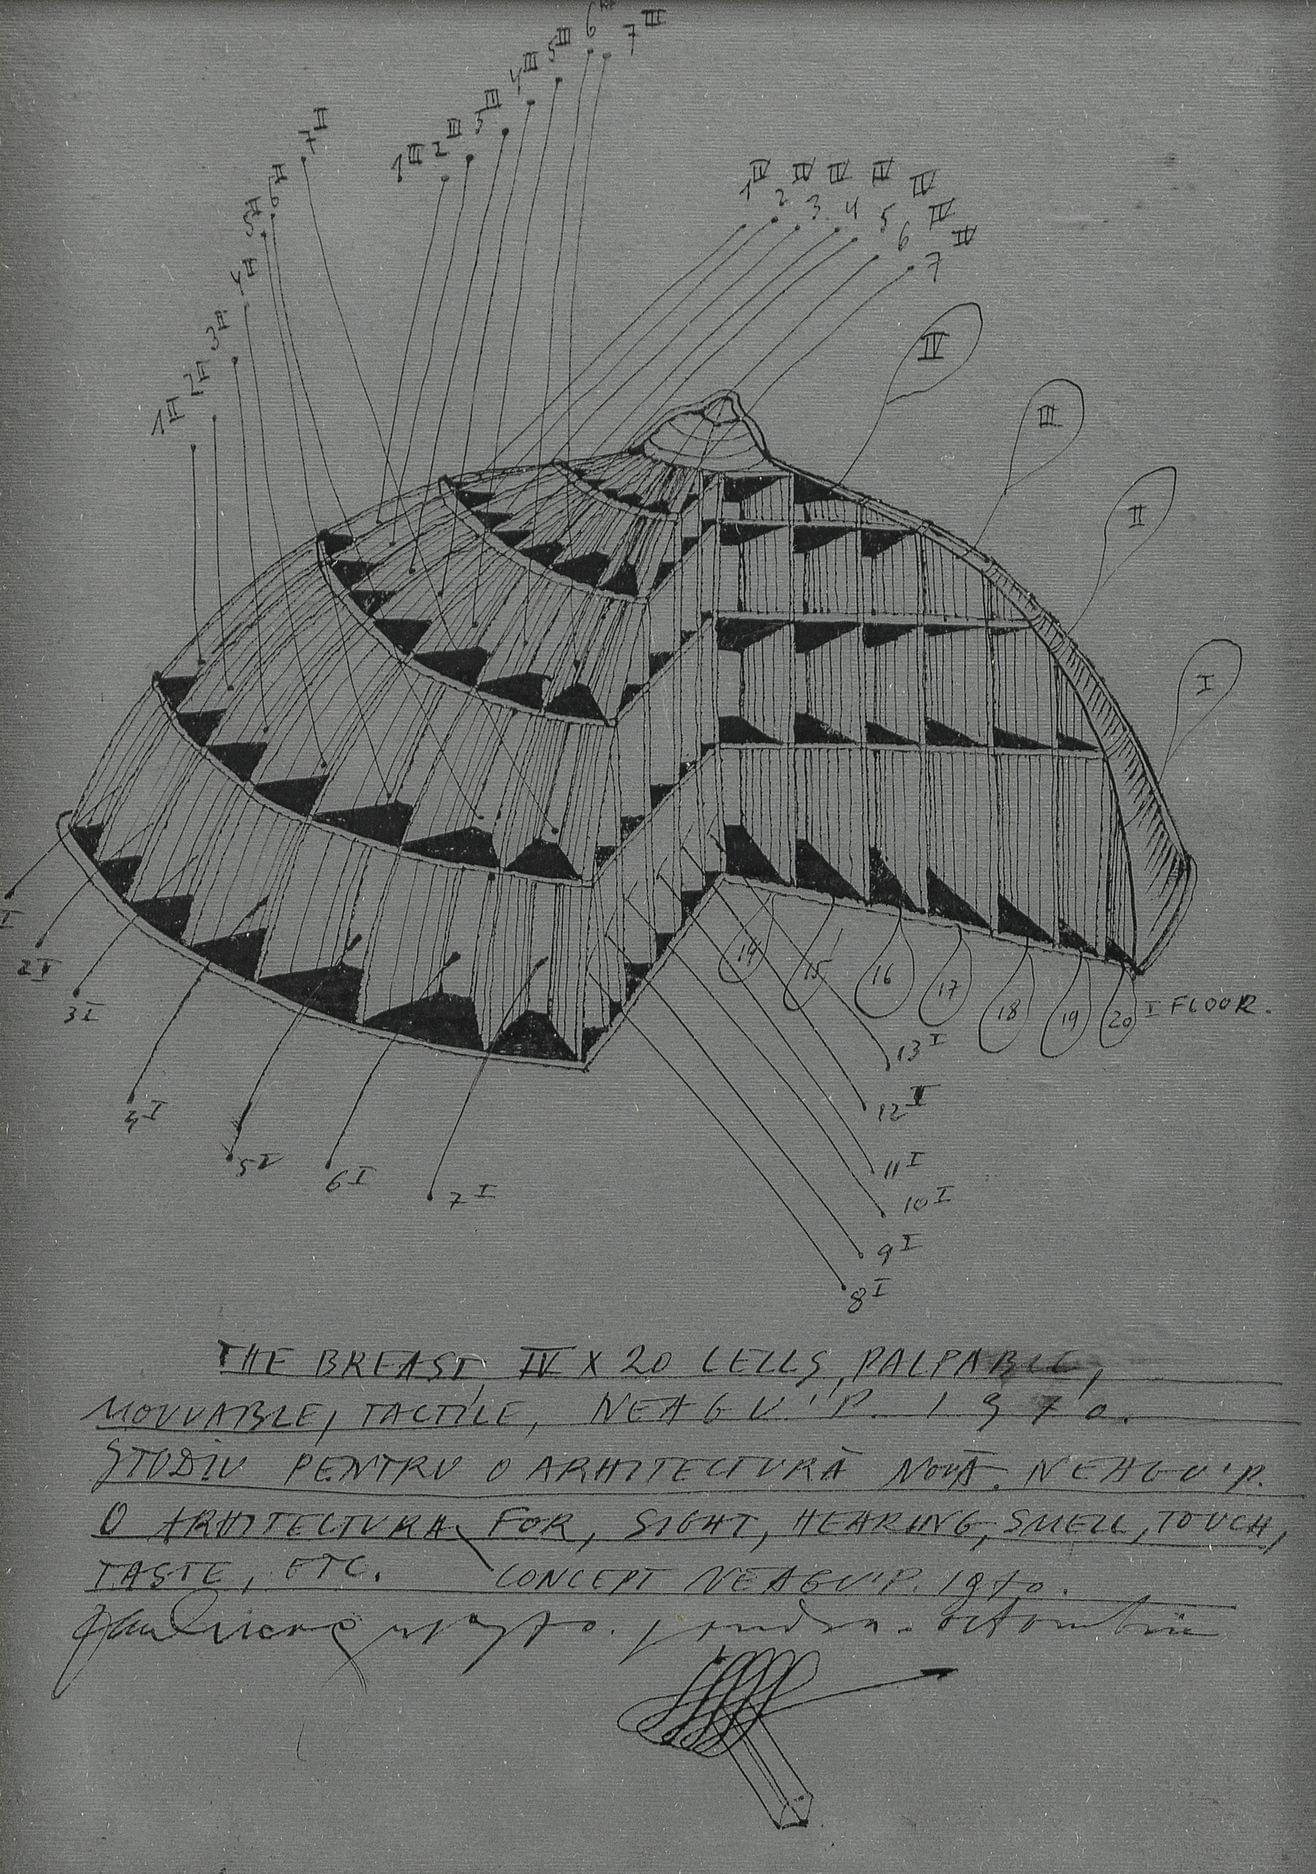 6 III
7 III
5 III
4 III
3 III
2 III
1 III
7 II
6 II
5 II
4 II
3 II
2 II
1 II
1 IV
2 IV
3 IV
4 IV
5 IV
6 IV
7 IV
IV
III
II
I
I
2 I
3 I
4 I
5 I
6 I
7 I
14
15
16
17
18
19
20
I FLOOR.
13 I
12 I
11 I
10 I
9 I
8 I
THE BREAST IV X 20 CELLS, PALPABLE,
MOUVABLE, TACTILE, NEAGU'P. 1970.
STUDIU PENTRU O ARHITECTURĂ NOUĂ. NEAGU'P.
O ARHITECTURA FOR, SIGHT, HEARING, SMELL, TOUCH,
TASTE, ETC. CONCEPT NEAGU'P. 1970.
Paul Neagu 1970. octombrie